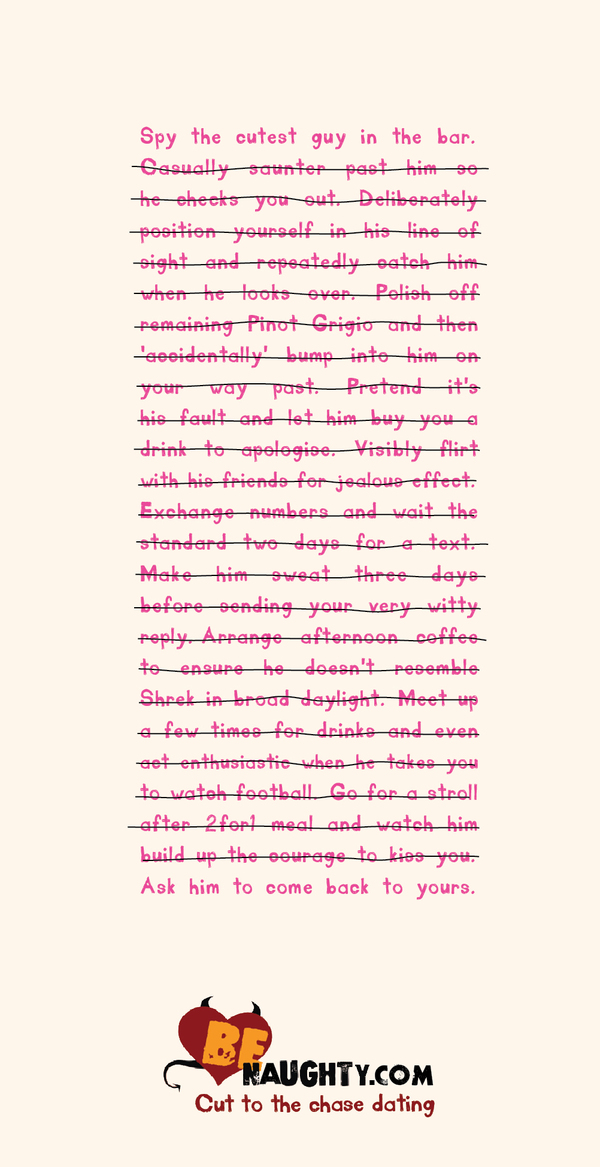 Spy the cutest guy in the bar.
Casually saunter past him so
he checks you out. Deliberately
position yourself in his line of
sight and repeatedly catch him
when he looks over. Polish off
remaining Pinot Grigio and then
'accidentally' bump into him on
your way past. Pretend it's
his fault and let him buy you a
drink to apologise. Visibly flirt
with his friends for jealous effect.
Exchange numbers and wait the
standard two days for a text.
Make him sweat three days
before sending your very witty
reply. Arrange afternoon coffee
to ensure he doesn't resemble
Shrek in broad daylight. Meet up
a few times for drinks and even
act enthusiastic when he takes you
to watch football. Go for a stroll
after 2for1 meal and watch him
build up the courage to kiss you.
Ask him to come back to yours.
BE
NAUGHTY.COM
Cut to the chase dating